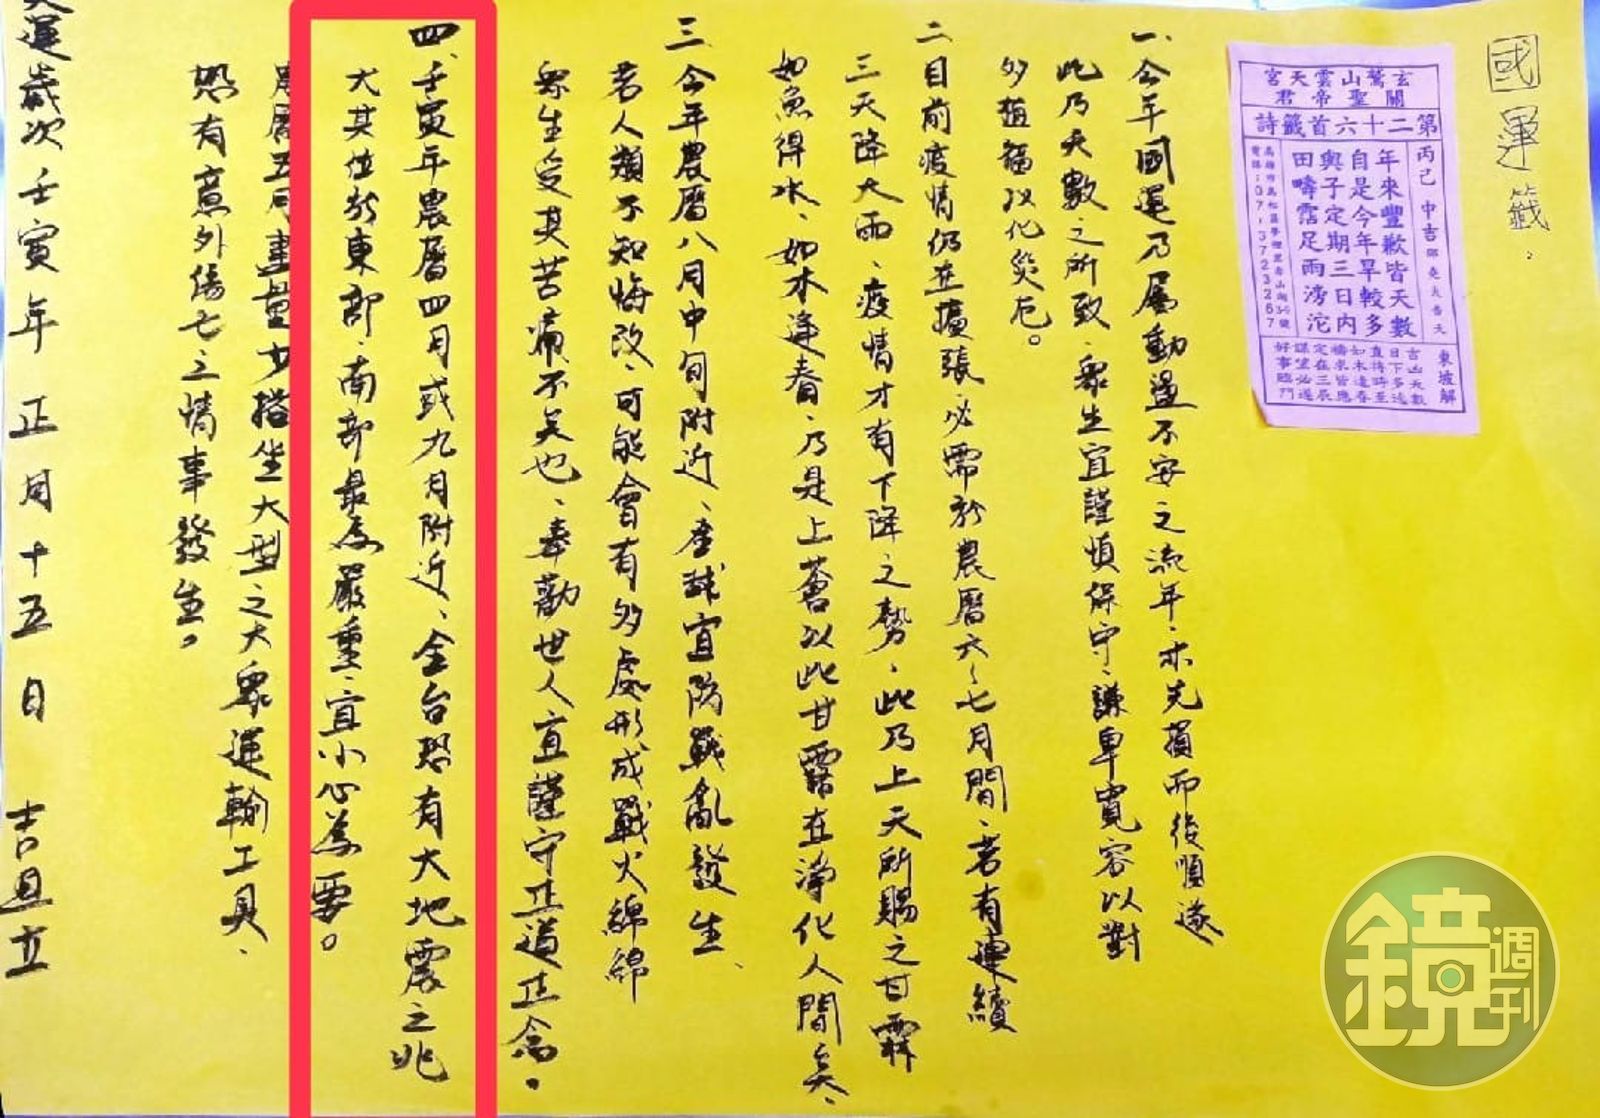 國運籤.
玄鷲山雲天宮
關聖帝君
第二十六首籤詩
丙己 中吉
年來豐歉皆天數
自是今年旱較多
與子定期三日內
田疇霑足雨滂沱
東坡解
吉凶天數
日下多遠
直待時至
如木逢春
禱求皆應
定在三辰
謀望必遂
好事臨門
一、今年國運乃屬動盪不安之流年、亦先損而後順遂
此乃天數之所致、眾生宜謹慎保守、謙卑寬容以對
多植福以化災厄。
二、目前疫情仍在擴張、必需於農曆六、七月間、若有連續
三天降大雨、疫情才有下降之勢、此乃上天所賜之甘霖
如魚得水、如木逢春、乃是上蒼以此甘露在淨化人間矣、
三、今年農曆八月中旬附近、全球宜防戰亂發生、
若人類不知悔改、可能會有多處形成戰火綿綿
眾生受其苦痛不矣也、奉勸世人宜謹守正道正念。
四、壬寅年農曆四月或九月附近、全台恐有大地震之兆
尤其位於東部、南部最為嚴重、宜小心為要。
農曆五月盡量少搭坐大型之大眾運輸工具、
恐有意外傷亡之情事發生。
天運歲次壬寅年正月十五日 吉旦立
鏡週刊